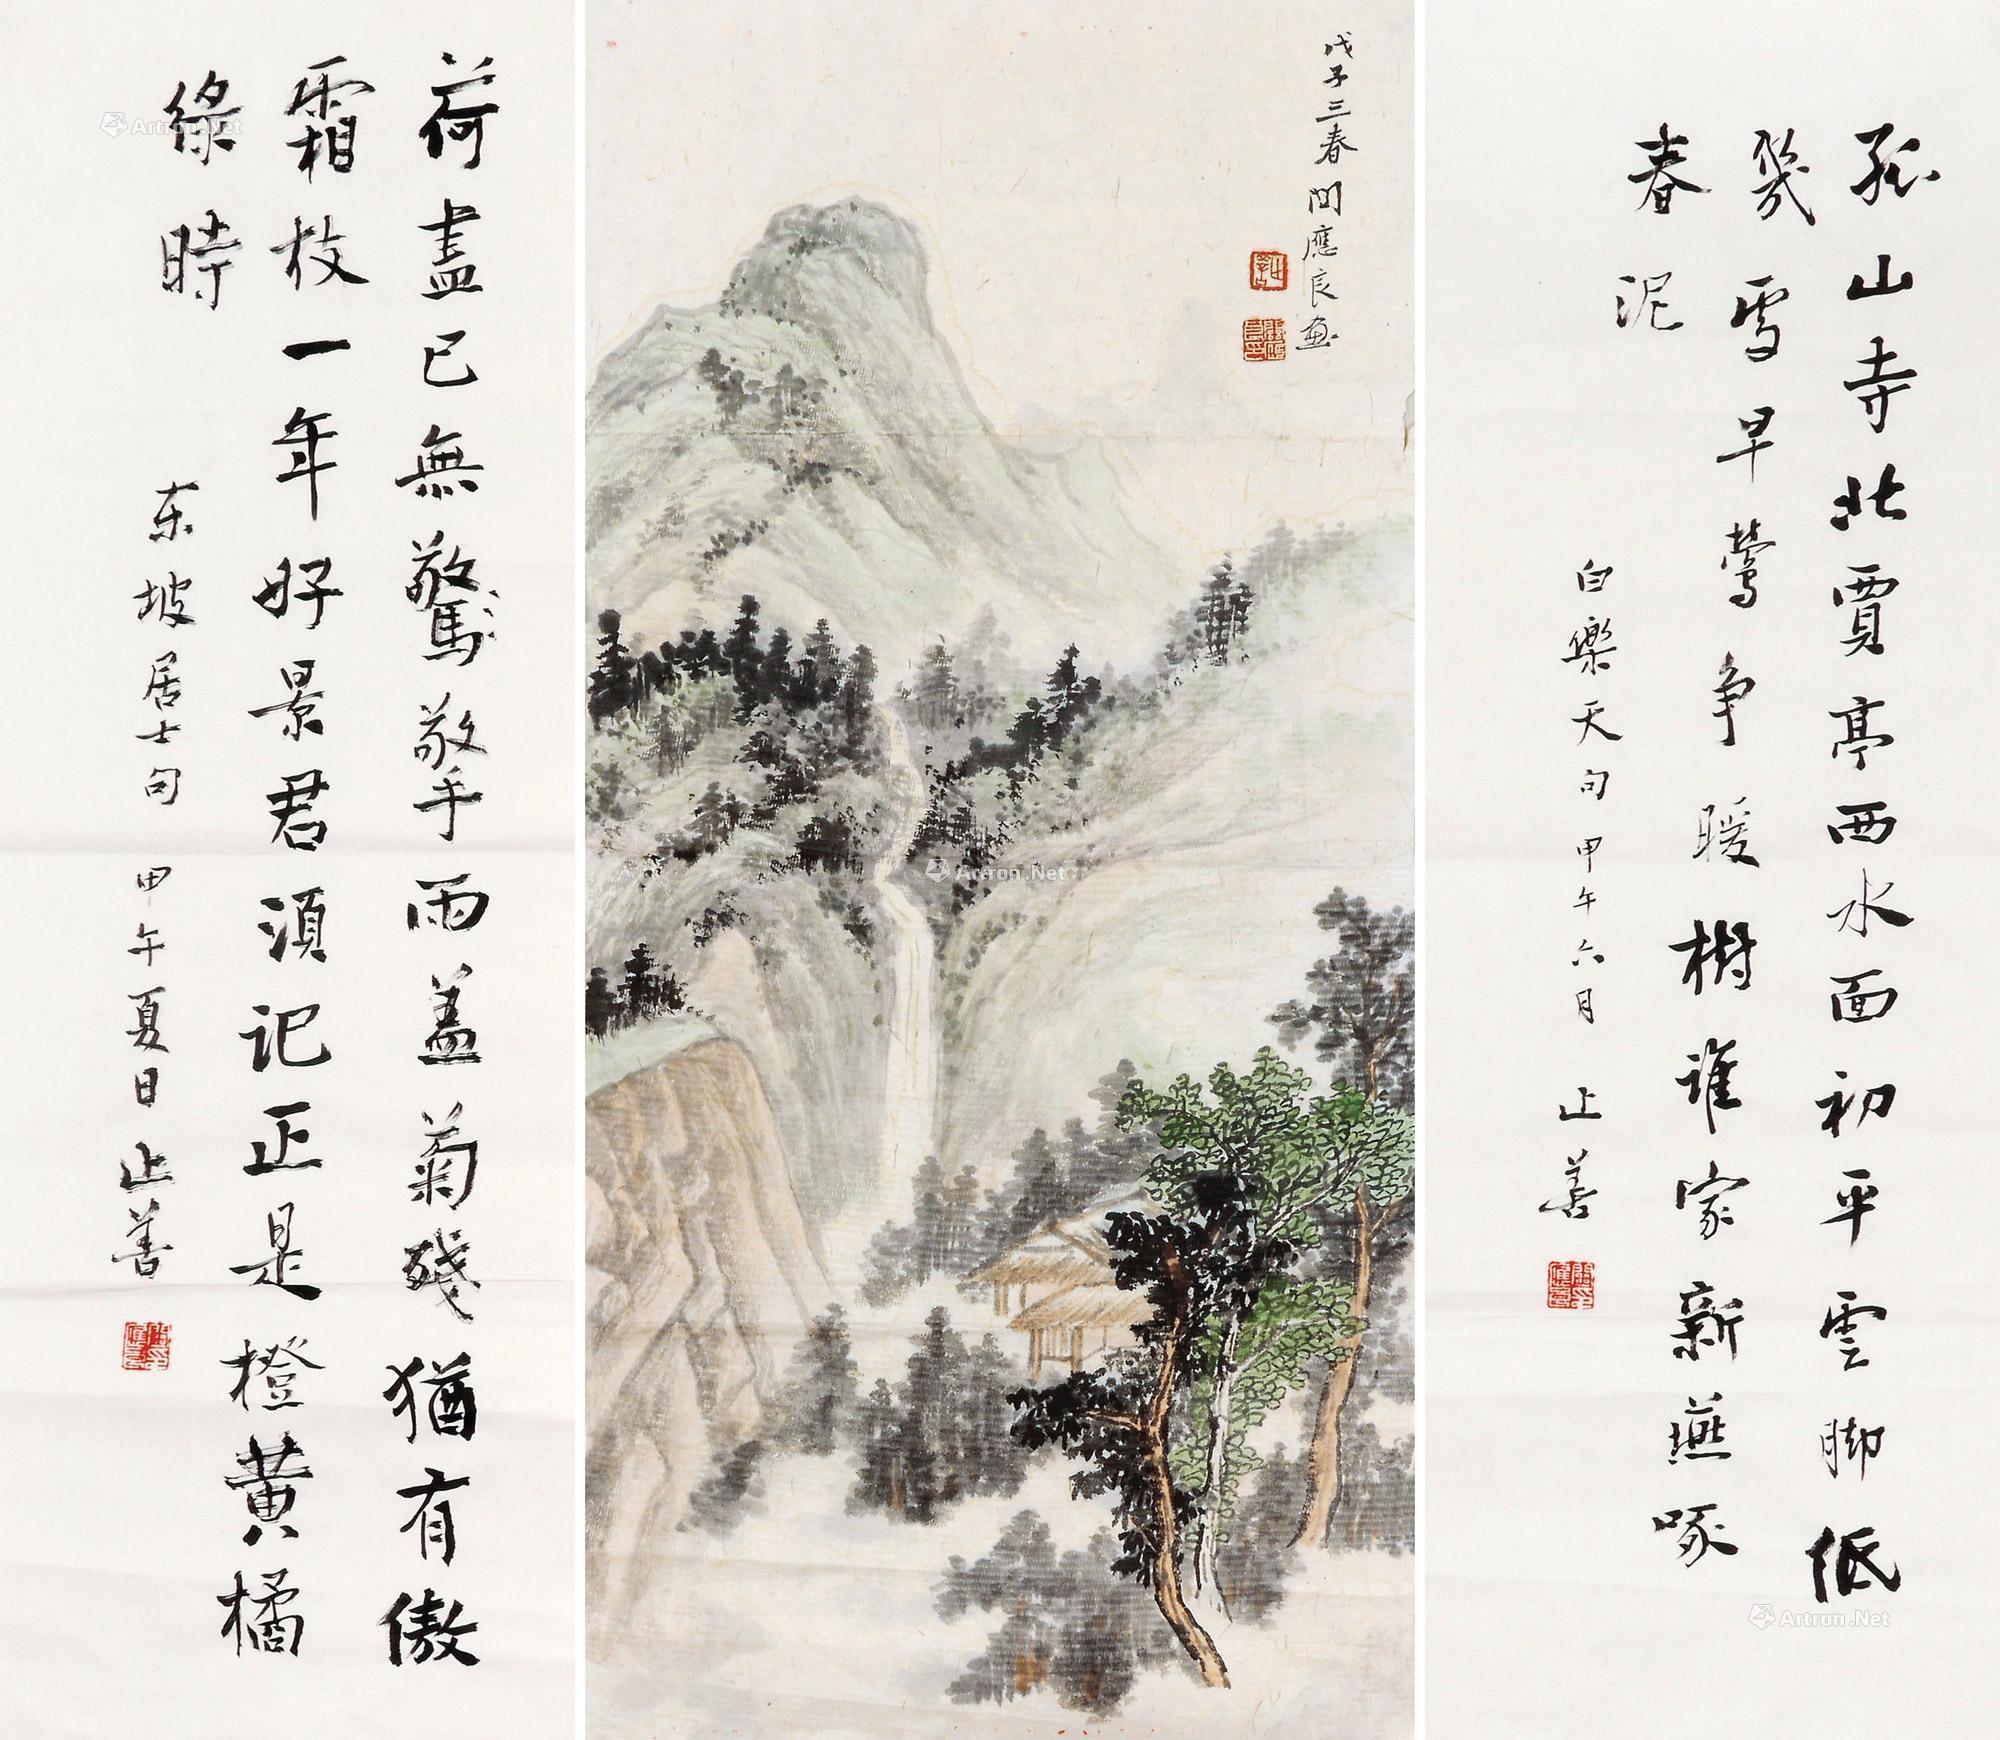 孤山寺北賈亭西水面初平雲脚低
幾處早鶯争暖樹誰家新燕啄
春泥
白樂天句 甲午六月 止善
戊子三春 關應良画
荷盡已無驚擎手雨盖菊殘猶有傲
霜枝一年好景君須记正是橙黄橘
綠時
东坡居士句 甲午夏日 止善
Artron.Net
Artron.Net
Artron.Net